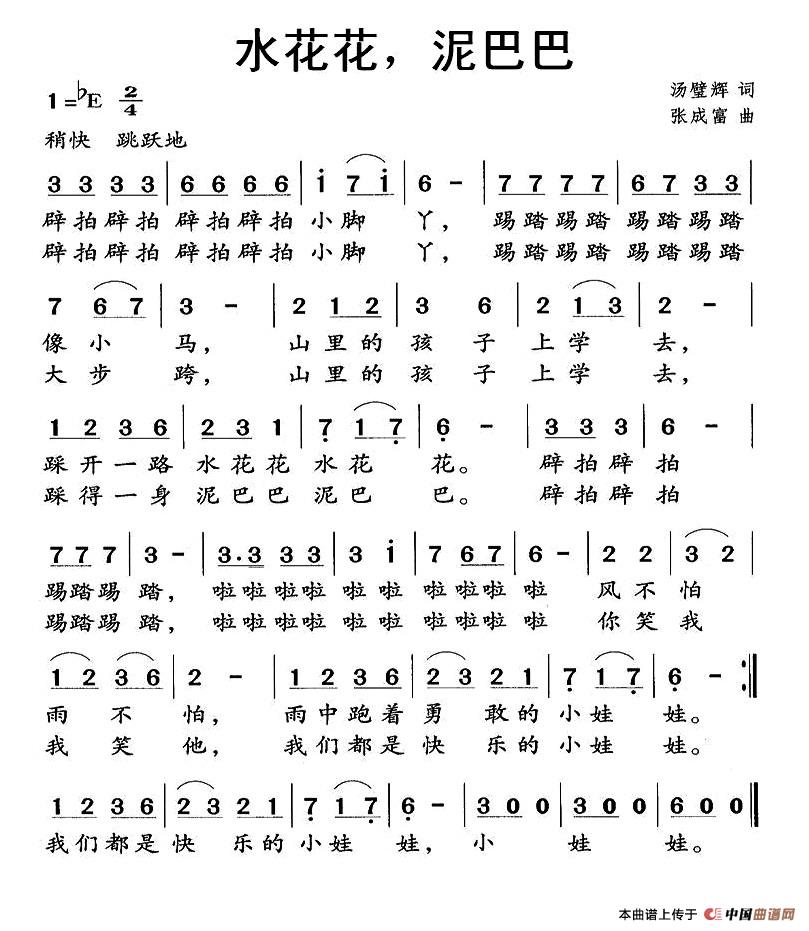 水花花，泥巴巴
1=♭E 2/4
汤璧辉 词
张成富 曲
稍快 跳跃地
3 3 3 3 | 6 6 6 6 | i 7 i | 6 - | 7 7 7 7 | 6 7 3 3 |
辟拍辟拍 辟拍辟拍 小脚 丫， 踢踏踢踏 踢踏踢踏
辟拍辟拍 辟拍辟拍 小脚 丫， 踢踏踢踏 踢踏踢踏
7 6 7 | 3 - | 2 1 2 | 3 6 | 2 1 3 | 2 - |
像 小 马， 山 里 的 孩 子 上 学 去，
大 步 跨， 山 里 的 孩 子 上 学 去，
1 2 3 6 | 2 3 1 | 7̣ 1 7̣ | 6̣ - | 3 3 3 | 3 6 |
踩 开 一 路 水 花 花 水 花 花。 辟 拍 辟 拍
踩 得 一 身 泥 巴 巴 泥 巴 巴。 辟 拍 辟 拍
7 7 7 | 3 - | 3. 3 3 3 | 3 i | 7 6 7 | 6 - | 2 2 | 3 2 |
踢踏踢 踏， 啦 啦 啦 啦 啦 啦 啦 啦 啦 啦 风 不 怕
踢踏踢 踏， 啦 啦 啦 啦 啦 啦 啦 啦 啦 啦 你 笑 我
1 2 3 6 | 2 - | 1 2 3 6 | 2 3 2 1 | 7̣ 1 7̣ | 6̣ - :|
雨 不 怕， 雨 中 跑 着 勇 敢 的 小 娃 娃。
我 笑 他， 我 们 都 是 快 乐 的 小 娃 娃。
1 2 3 6 | 2 3 2 1 | 7̣ 1 7̣ | 6̣ - | 3 0 0 | 3 0 0 | 6 0 0 ‖
我 们 都 是 快 乐 的 小 娃 娃， 小 娃 娃。
本曲谱上传于 中国曲谱网